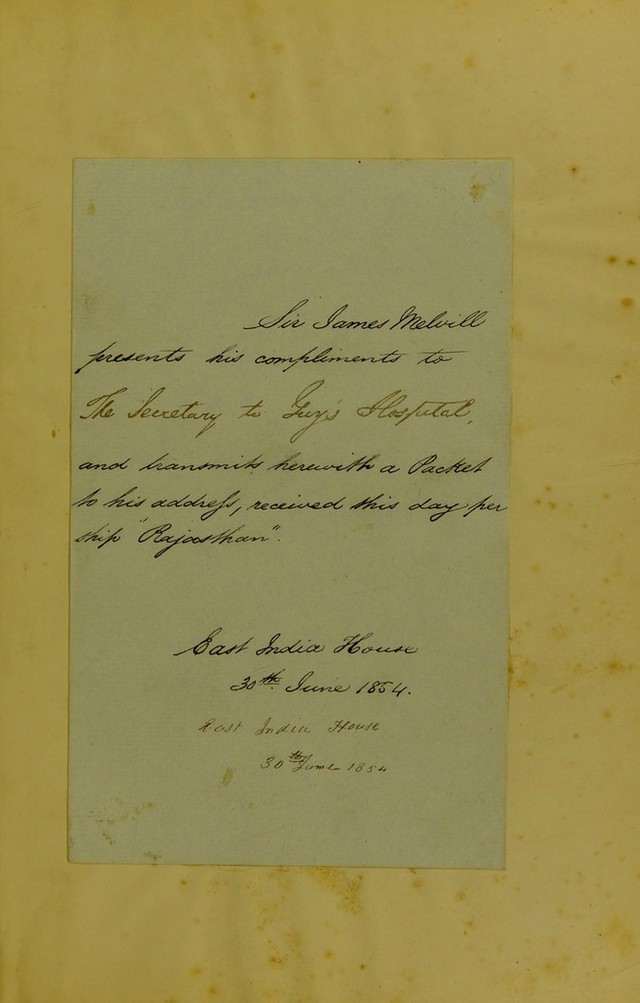 Sir James Melvill
presents his compliments to
The Secretary to Guy's Hospital,
and transmits herewith a Packet
to his addreſs, received this day per
ship "Rajasthan".
East India House
30th June 1854.
East India House
30th June 1854